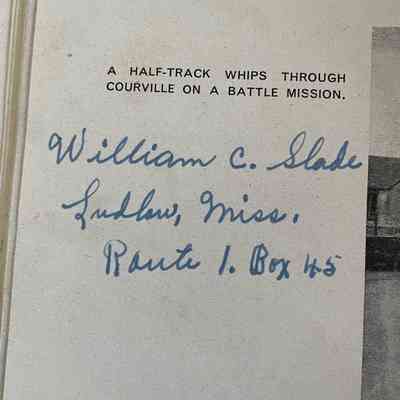 A HALF-TRACK WHIPS THROUGH
COURVILLE ON A BATTLE MISSION.
William C. Slade
Ludlow, Miss.
Route 1. Box 45